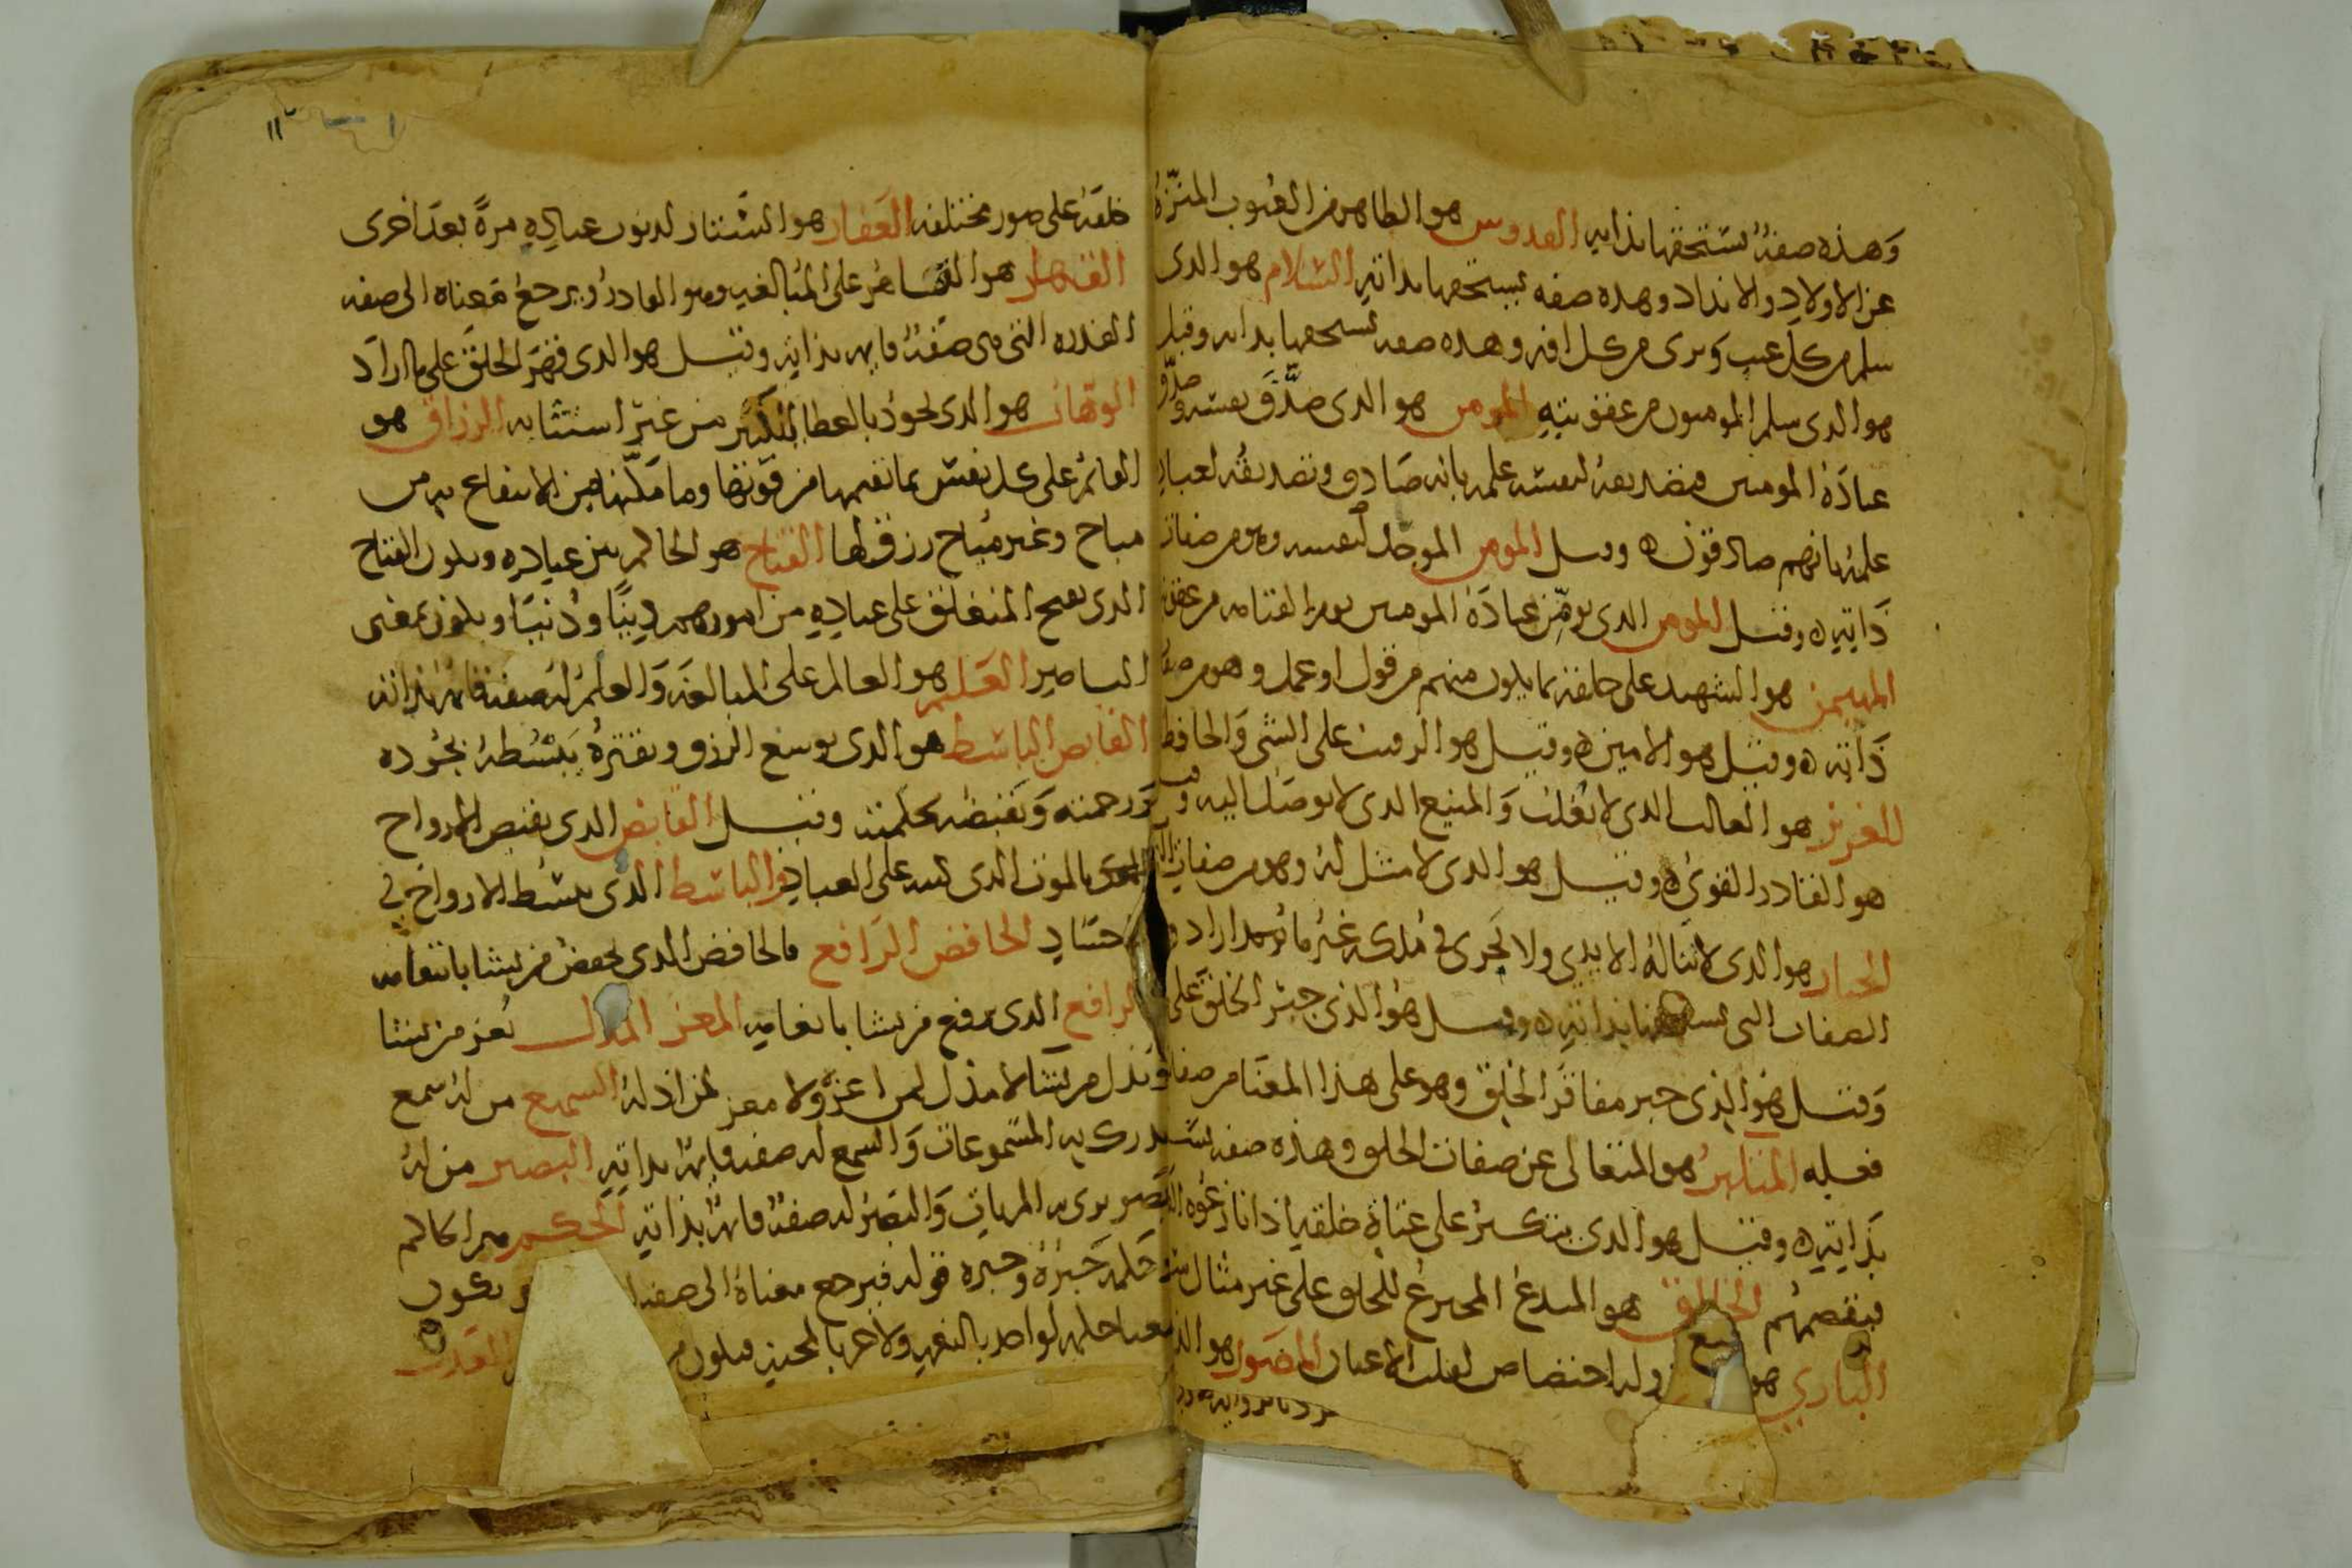 وهذه صفة يستحقها بذاته القدوس هو الطاهر من العيوب المنزه
عن الاولاد والانداد وهذه صفه يستحقها بذاته السلام هو الذى
سلم من كل عيب وبرى من كل افه وهذه صفه يستحقها بذاته وقيل
هو الذى سلم المومنون من عقوبته المومن هو الذى صدق نفسه وصدق
عباده المومنين فتصديقه لنفسه علمه بانه صادق وتصديقه لعباده
علمه بانهم صادقون وقيل المومن الموحد لنفسه وهو من صفات
ذاته وقيل المومن الذى يومن عباده المومنين يوم القيامه من عقوبته
المهيمن هو الشهيد على خلقه بما يكون منهم من قول او عمل وهو من صفات
ذاته وقيل هو الامين وقيل هو الرقيب على الشى والحافظ
العزيز هو الغالب الذى لا يغلب والمنيع الذى لا يوصل اليه وقيل
هو القادر القوى وقيل هو الذى لا مثل له وهو من صفات
الجبار هو الذى لا تناله الايدى ولا يجرى فى ملكه غير ما اراد
الصفات التى بذاته وقيل هو الذى جبر الخلق على
وقيل هو الذى جبر مفاقر الخلق وهو على هذا المعنا من صفات
فعله المتكبر هو المتعالى عن صفات الخلق وهذه صفه
بذاته وقيل هو الذى يتكبر على عتاة خلقه اذا نازعوه
فيقصمهم الخالق هو المبدع المخترع للخلق على غير مثال
البارى هو وله اختصاص لقلب الاعيان المصور هو الذى
خلقه على صور مختلفه الغفار هو الستار لذنوب عباده مرة بعد اخرى
القهار هو القاهر على المبالغه وهو القادر ويرجع معناه الى صفه
القدره التى هى صفة قايمه بذاته وقيل هو الذى قهر الخلق على ما اراد
الوهاب هو الذى يجود بالعطا الكثير من غير استثابه الرزاق هو
القائم على كل نفس بما تقيمها من قوتها وما مكنها من الانتفاع به من
مباح وغير مباح رزق لها الفتاح هو الحاكم بين عباده ويكون الفتاح
الذى يفتح المنغلق على عباده من امورهم دينا ودنيا ويكون بمعنى
الناصر العليم هو العالم على المبالغه والعلم له صفة قايمه بذاته
القابض الباسط هو الذى يوسع الرزق ويقتره يبسطه بجوده
ورحمته ويقبضه بحكمته وقيل القابض الذى يقبض الارواح
بالموت الذى كتبه على العباد والباسط الذى يبسط الارواح فى
الاجساد الخافض الرافع فالخافض الذى يخفض من يشا بانتقامه
والرافع الذى يرفع من يشا بانعامه المعز المذل يعز من يشا
ويذل من يشا لا مذل لمن اعزه ولا معز لمن اذله السميع من له سمع
يدرك به المسموعات والسمع له صفه قايمة بذاته البصير من له
بصر يرى به المريات والبصر له صفة قايمة بذاته الحكم هو الحاكم
حكمه خبره وخبره قوله فيرجع معناه الى صفه يكون
حكمه لواحد بالنعيم ولاخر بالمحن فيكون العدل